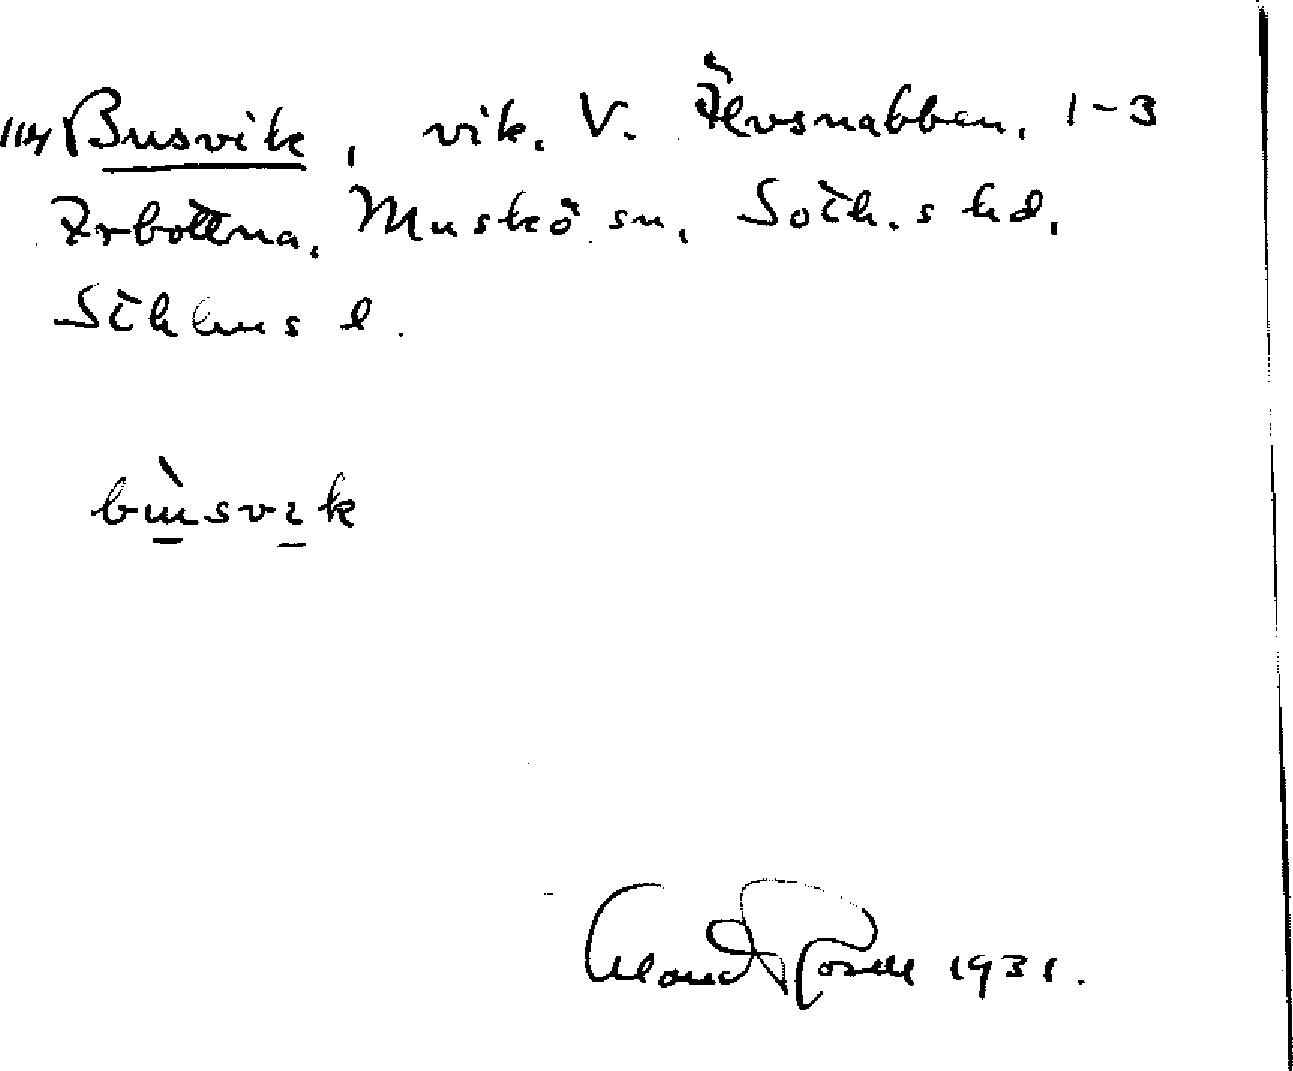 Busvik, vik. V. Älvsnabben, 1-3
Arbottna, Muskö sn, Soth.s hd,
Sthlms l.
bùsvik
1931.